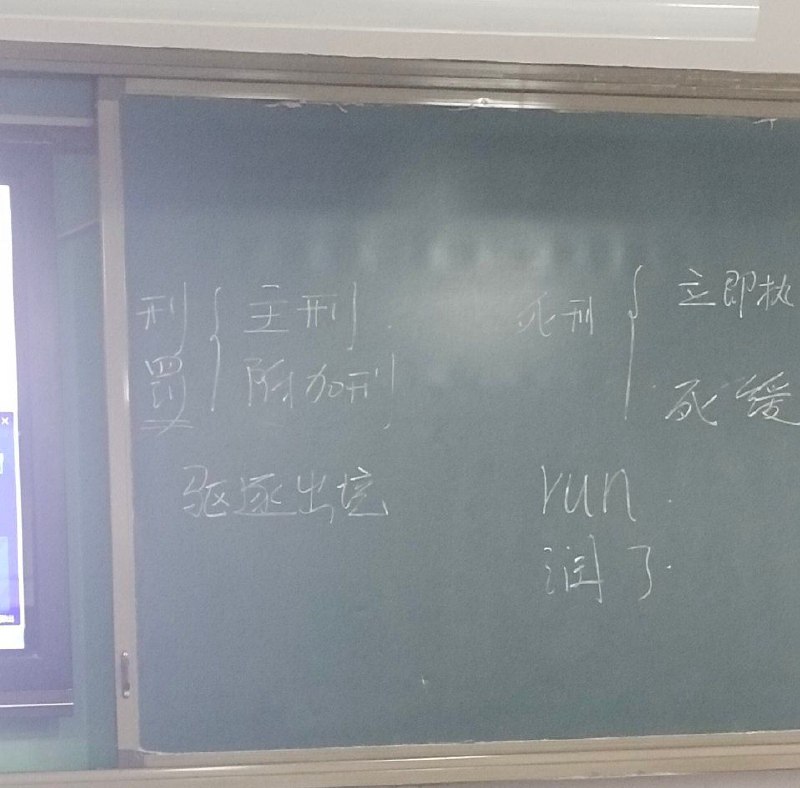 刑罚
主刑
附加刑
驱逐出境
死刑
立即执
死缓
run.
润了.